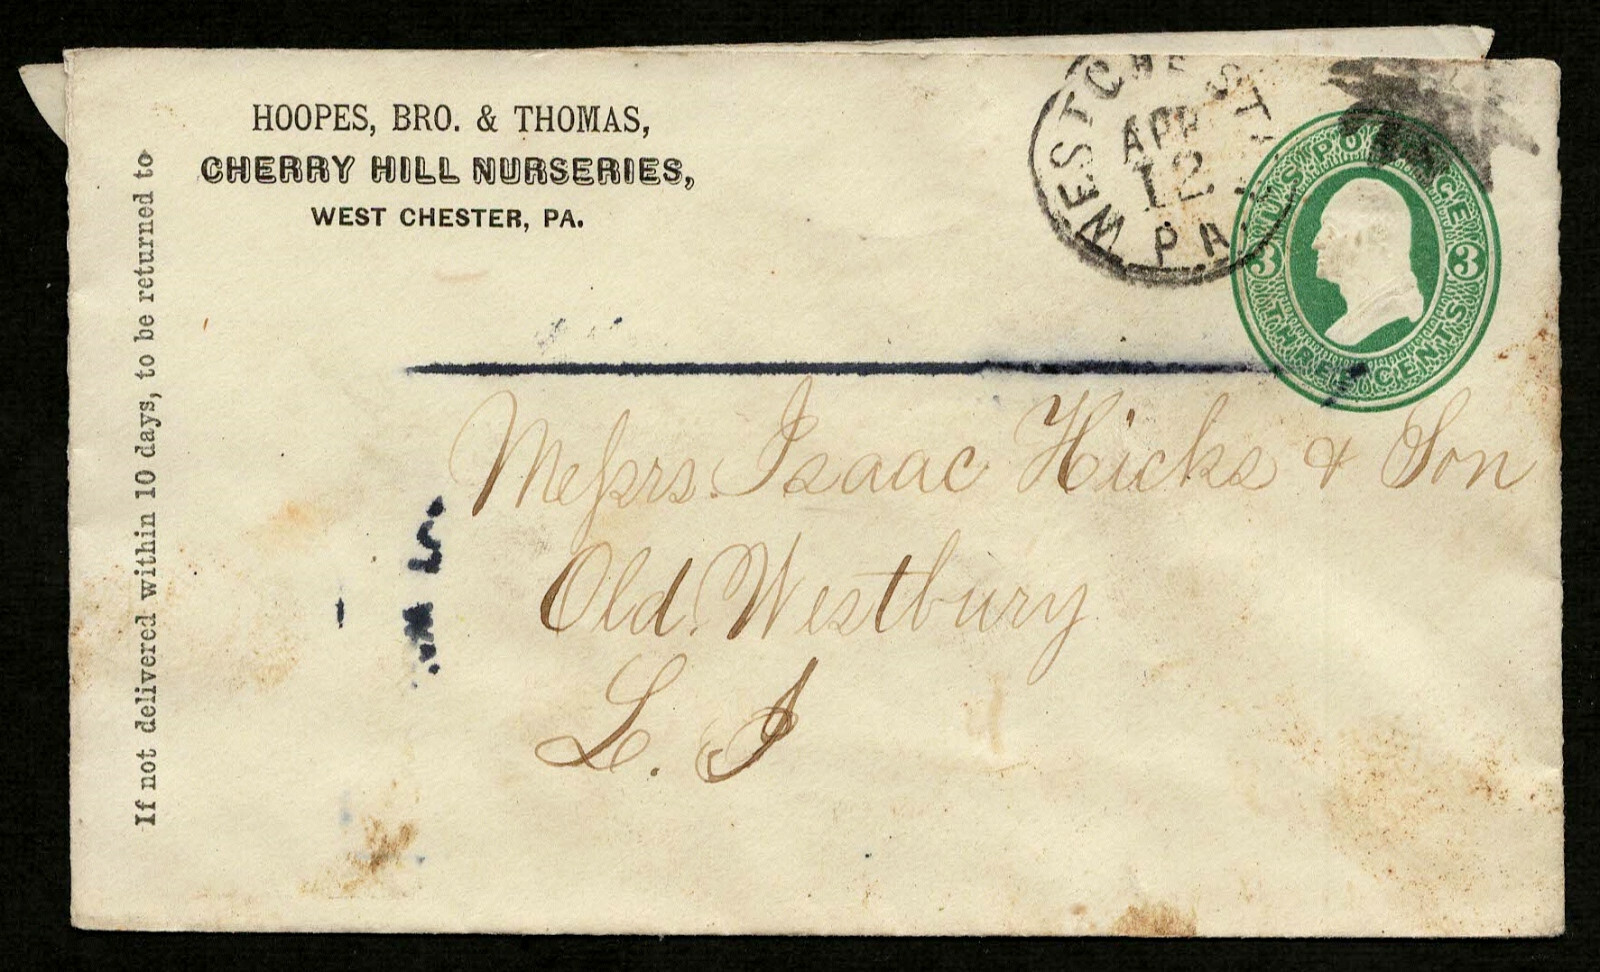 If not delivered within 10 days, to be returned to
HOOPES, BRO. & THOMAS,
CHERRY HILL NURSERIES,
WEST CHESTER, PA.
WEST CHESTER
APR
12
PA.
U.S. POSTAGE
3 3
THREE CENTS
Messrs. Isaac Hicks & Son
Old Westbury
L. I